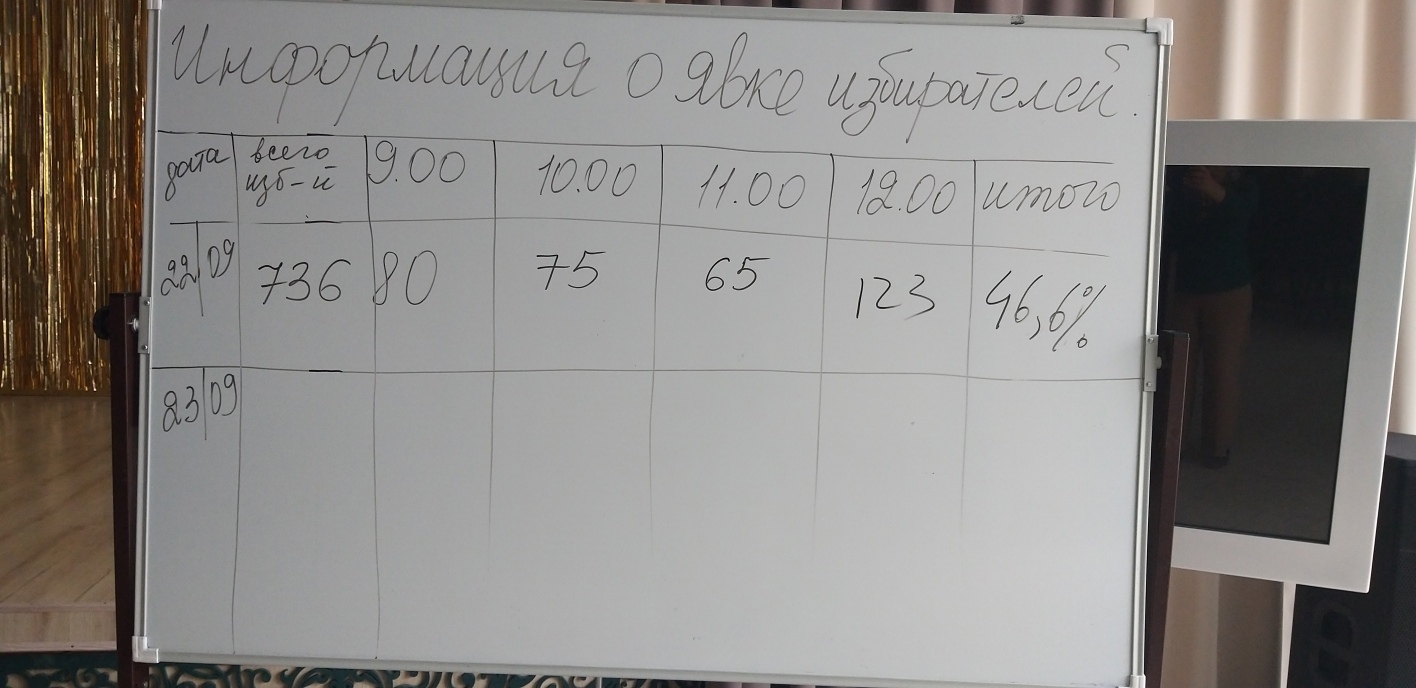 Информация о явке избирателей.
дата всего изб-й 9.00 10.00 11.00 12.00 итого
22/09 736 80 75 65 123 46,6%
23/09